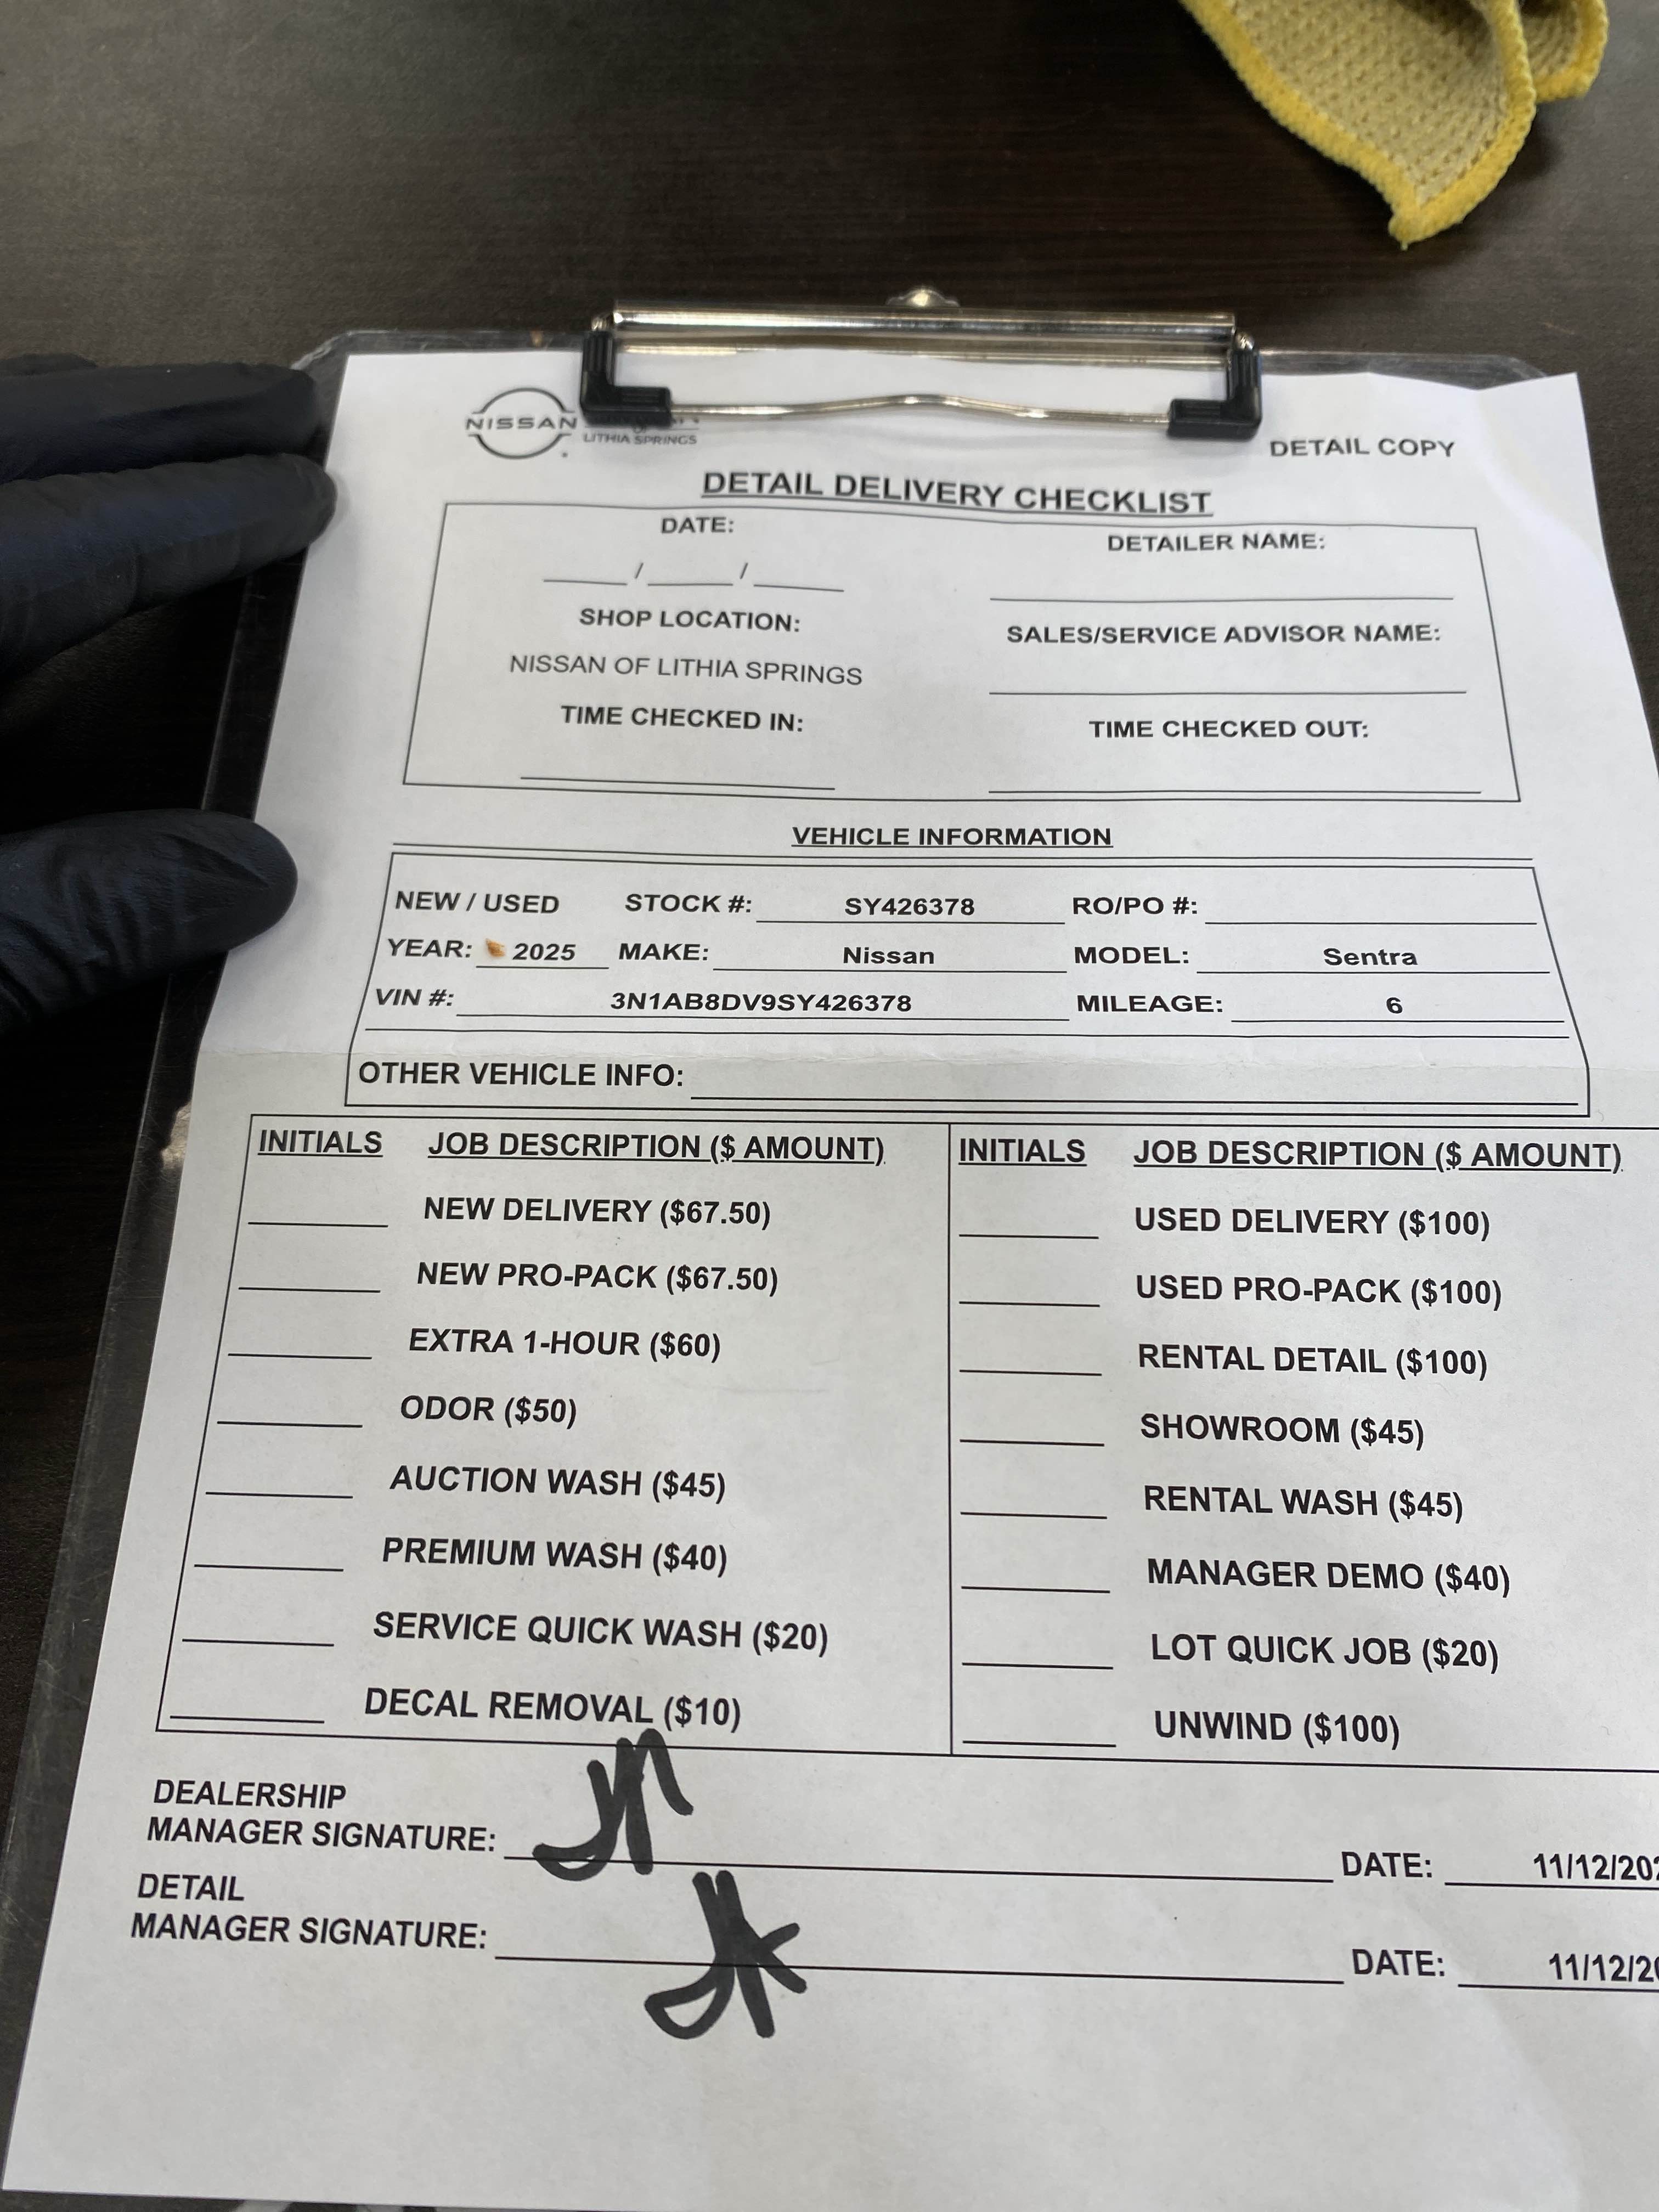 NISSAN
LITHIA SPRINGS
DETAIL COPY
DETAIL DELIVERY CHECKLIST
DATE:
DETAILER NAME:
____/____/____
SHOP LOCATION:
SALES/SERVICE ADVISOR NAME:
NISSAN OF LITHIA SPRINGS
TIME CHECKED IN:
TIME CHECKED OUT:
VEHICLE INFORMATION
NEW / USED STOCK #: SY426378 RO/PO #:
YEAR: 2025 MAKE: Nissan MODEL: Sentra
VIN #: 3N1AB8DV9SY426378 MILEAGE: 6
OTHER VEHICLE INFO:
INITIALS JOB DESCRIPTION ($ AMOUNT)
NEW DELIVERY ($67.50)
NEW PRO-PACK ($67.50)
EXTRA 1-HOUR ($60)
ODOR ($50)
AUCTION WASH ($45)
PREMIUM WASH ($40)
SERVICE QUICK WASH ($20)
DECAL REMOVAL ($10)
INITIALS JOB DESCRIPTION ($ AMOUNT)
USED DELIVERY ($100)
USED PRO-PACK ($100)
RENTAL DETAIL ($100)
SHOWROOM ($45)
RENTAL WASH ($45)
MANAGER DEMO ($40)
LOT QUICK JOB ($20)
UNWIND ($100)
DEALERSHIP
MANAGER SIGNATURE: DATE: 11/12/202
DETAIL
MANAGER SIGNATURE: JK DATE: 11/12/20